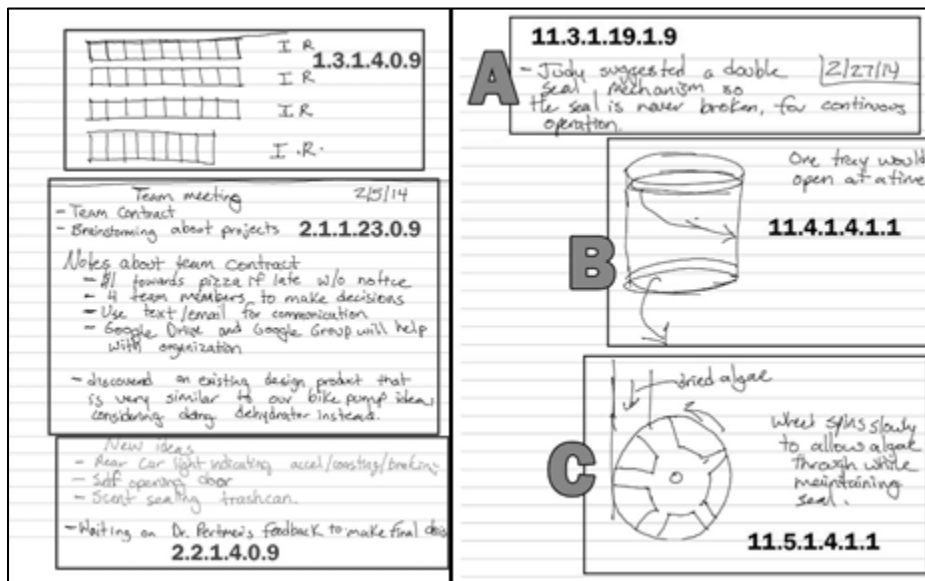 I R
1.3.1.4.0.9
I R
I R
I.R.
Team meeting 2/5/14
- Team Contract
- Brainstorming about projects 2.1.1.23.0.9
Notes about team contract
- $1 towards pizza if late w/o notice
- 4 team members to make decisions
- Use text/email for communication
- Google Drive and Google Group will help
with organization
- discovered an existing design product that
is very similar to our bike pump idea,
considering doing dehydrator instead.
New ideas
- Rear car light indicating accel/coasting/braking
- Self opening door
- Scent sealing trashcan.
- Waiting on Dr. Pertmer's feedback to make final
2.2.1.4.0.9
11.3.1.19.1.9
A
- Judy suggested a double 2/27/14
seal mechanism so
the seal is never broken, for continuous
operation.
One tray would
open at a time
11.4.1.4.1.1
B
dried algae
C
Wheel spins slowly
to allow algae
through while
maintaining
seal.
11.5.1.4.1.1